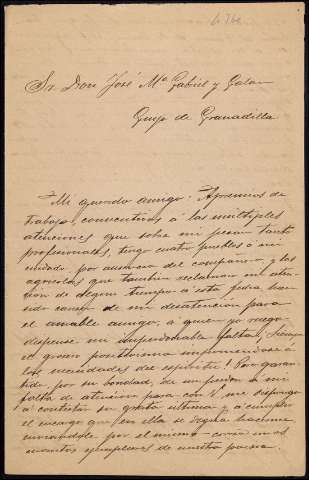 Sr. Don José Mª Gabriel y Galan
Guijo de Granadilla
Mi querido amigo: Apremios de
trabajo, consecutivos á las multiples
atenciones que sobre mi pesan tanto
profesionales, tengo cuatro pueblos á mi
cuidado por ausencia del compañero, y las
agricolas que tambien reclaman mi aten-
ción de algun tiempo á esta fecha han
sido causa de mi desatención para
el amable amigo, á quien yo ruego
dispense mi imperdonable falta; siempre
el grosero positivismo imponiendose á
las necesidades del espiritu! Por garan-
tido por su bondad, de un perdon á mi
falta de atencion para con V. me dispongo
á contestar su grata ultima y á cumplir
el encargo que en ella se digna hacerme
enviandole por el mismo correo
cuantos ejemplares de nuestra poesia